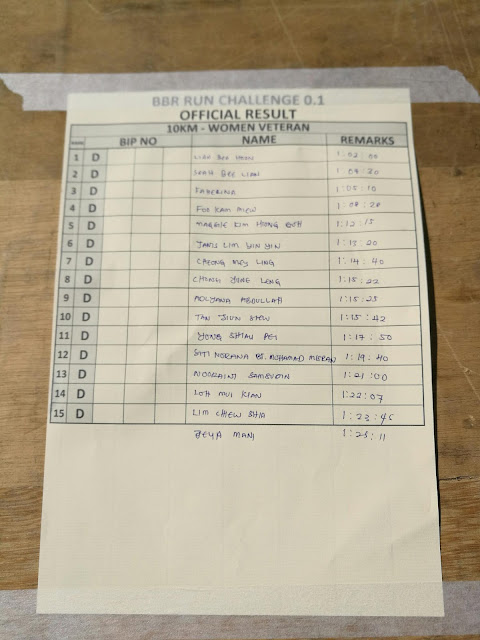 BBR RUN CHALLENGE 0.1
OFFICIAL RESULT
10KM - WOMEN VETERAN
RANK BIP NO NAME REMARKS
1 D 1:02:00
2 D SEAH BEE LIAN 1:04:20
3 D KABERINA 1:05:10
4 D FOO KAM MIEW 1:08:28
5 D MAGGIE KIM HIONG 1:12:15
6 D JANIS LIM YIN YIN 1:13:20
7 D CHEONG MEI LING 1:14:40
8 D CHONG YINE LENG 1:15:22
9 D ADLYANA ABDULLAH 1:15:25
10 D TAN SIUN SHIU 1:15:42
11 D YONG SHIAU PEI 1:17:50
12 D SITI NORANA BT. MOHAMAD MISRAN 1:19:40
13 D NOORAINI SAMSUDIN 1:21:00
14 D LOH MUI KIAN 1:22:07
15 D LIM CHEW SHIA 1:23:45
JEYA MANI 1:28:11